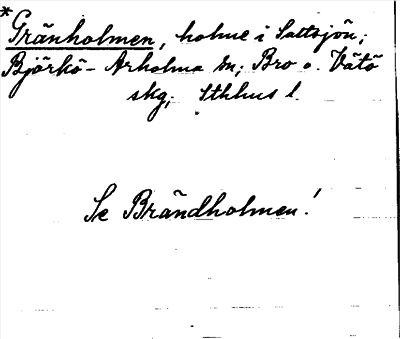 *Gränholmen, holme i Saltsjön;
Björkö-Arholma sn; Bro o. Vätö
skg; Sthlms l.
Se Brändholmen!